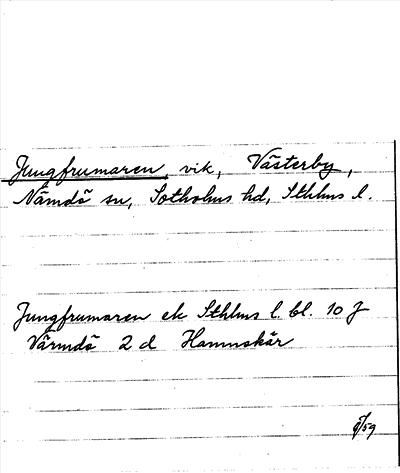 Jungfrumaren, vik, Västerby,
Nämdö sn, Sotholms hd, Sthlms l.
Jungfrumaren ek Sthlms l. bl. 10 J
Värmdö 2 d Hamnskär
/59